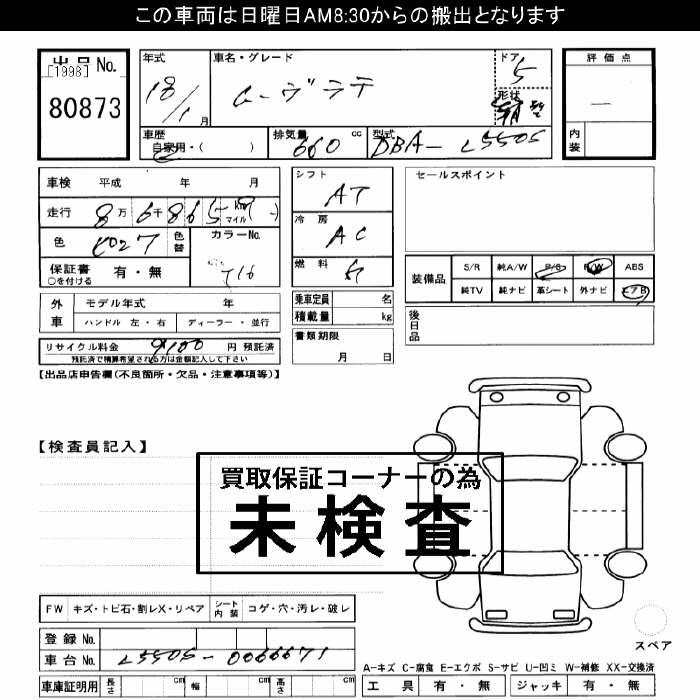 この車両は日曜日AM8:30からの搬出となります
出品 No.
[1998]
80873
年式
18/1 月
車名・グレード
ムーヴラテ
ドア
5
形状
評価点
—
内装
車歴
自家用・( )
排気量
660 cc
型式
DBA- L550S
車検 平成 年 月
走行 8万 6千 8 6 5 km マイル
色
色替
カラーNo.
T16
保証書 有・無
○を付ける
シフト
AT
冷房
AC
燃料
ガ
セールスポイント
装備品
S/R 純A/W P/S P/W ABS
純TV 純ナビ 革シート 外ナビ エアB
外車
モデル年式 年
ハンドル 左・右 ディーラー・並行
乗車定員 名
積載量 kg
後日品
リサイクル料金 9100 円 預託済
預託済で精算希望される方は金額記入して下さい
書類期限
月 日
【出品店申告欄(不良箇所・欠品・注意事項等)】
【検査員記入】
買取保証コーナーの為
未検査
FW キズ・トビ石・割レX・リペア シート内装 コゲ・穴・汚レ・破レ
スペア
登録 No.
車台 No. L550S-0066671
A-キズ C-腐食 E-エクボ S-サビ U-凹ミ W-補修 XX-交換済
車庫証明用 長さ cm 幅 cm 高さ cm
工具 有・無 ジャッキ 有・無